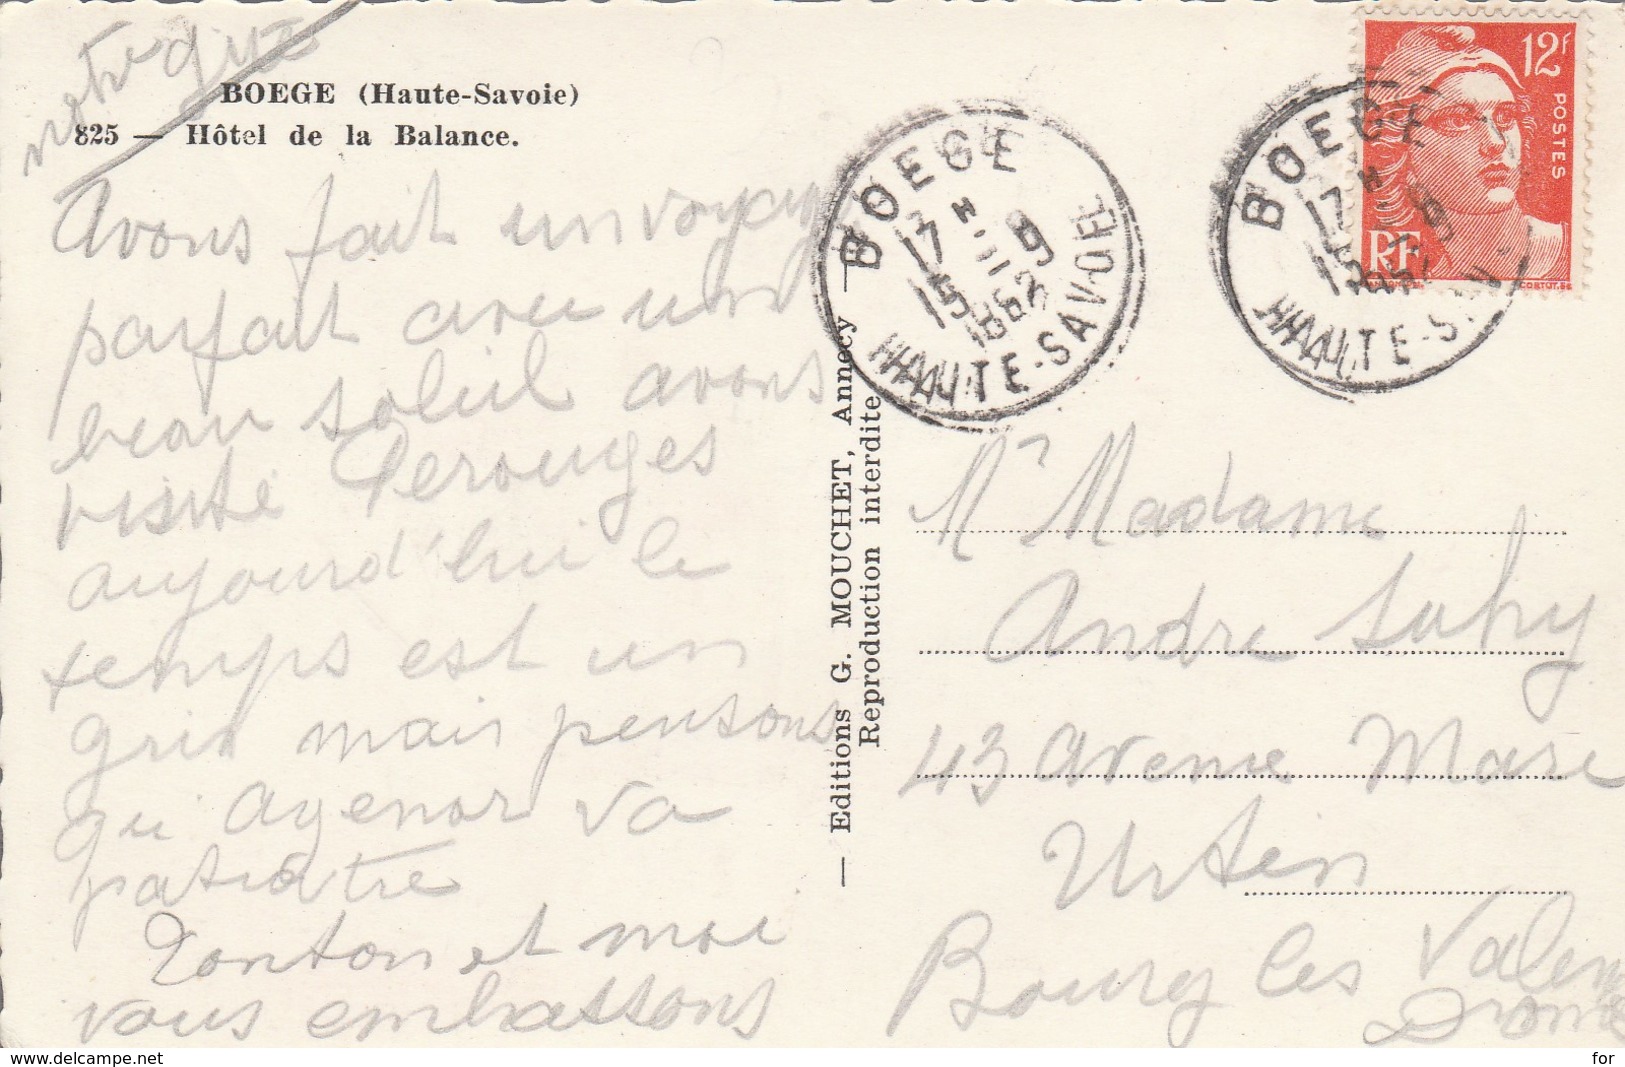 BOEGE (Haute-Savoie)
825 — Hôtel de la Balance.
Avons fait un voyage
parfait avec un
beau soleil avons
visité Perouges
aujourd'hui le
temps est un
gris mais pensons
qu agenor va
paraitre
Tonton et moi
vous embrassons
— Editions G. MOUCHET, Annecy —
Reproduction interdite
BOEGE
17 H
15 - 9
HAUTE-SAVOIE
12F
POSTES
RF
BOEGE
17 H
HAUTE-SA
Mr Madame
Andre
43 Avenue Marc
Urtin
Bourg les Valen
Drome
www.delcampe.net
for